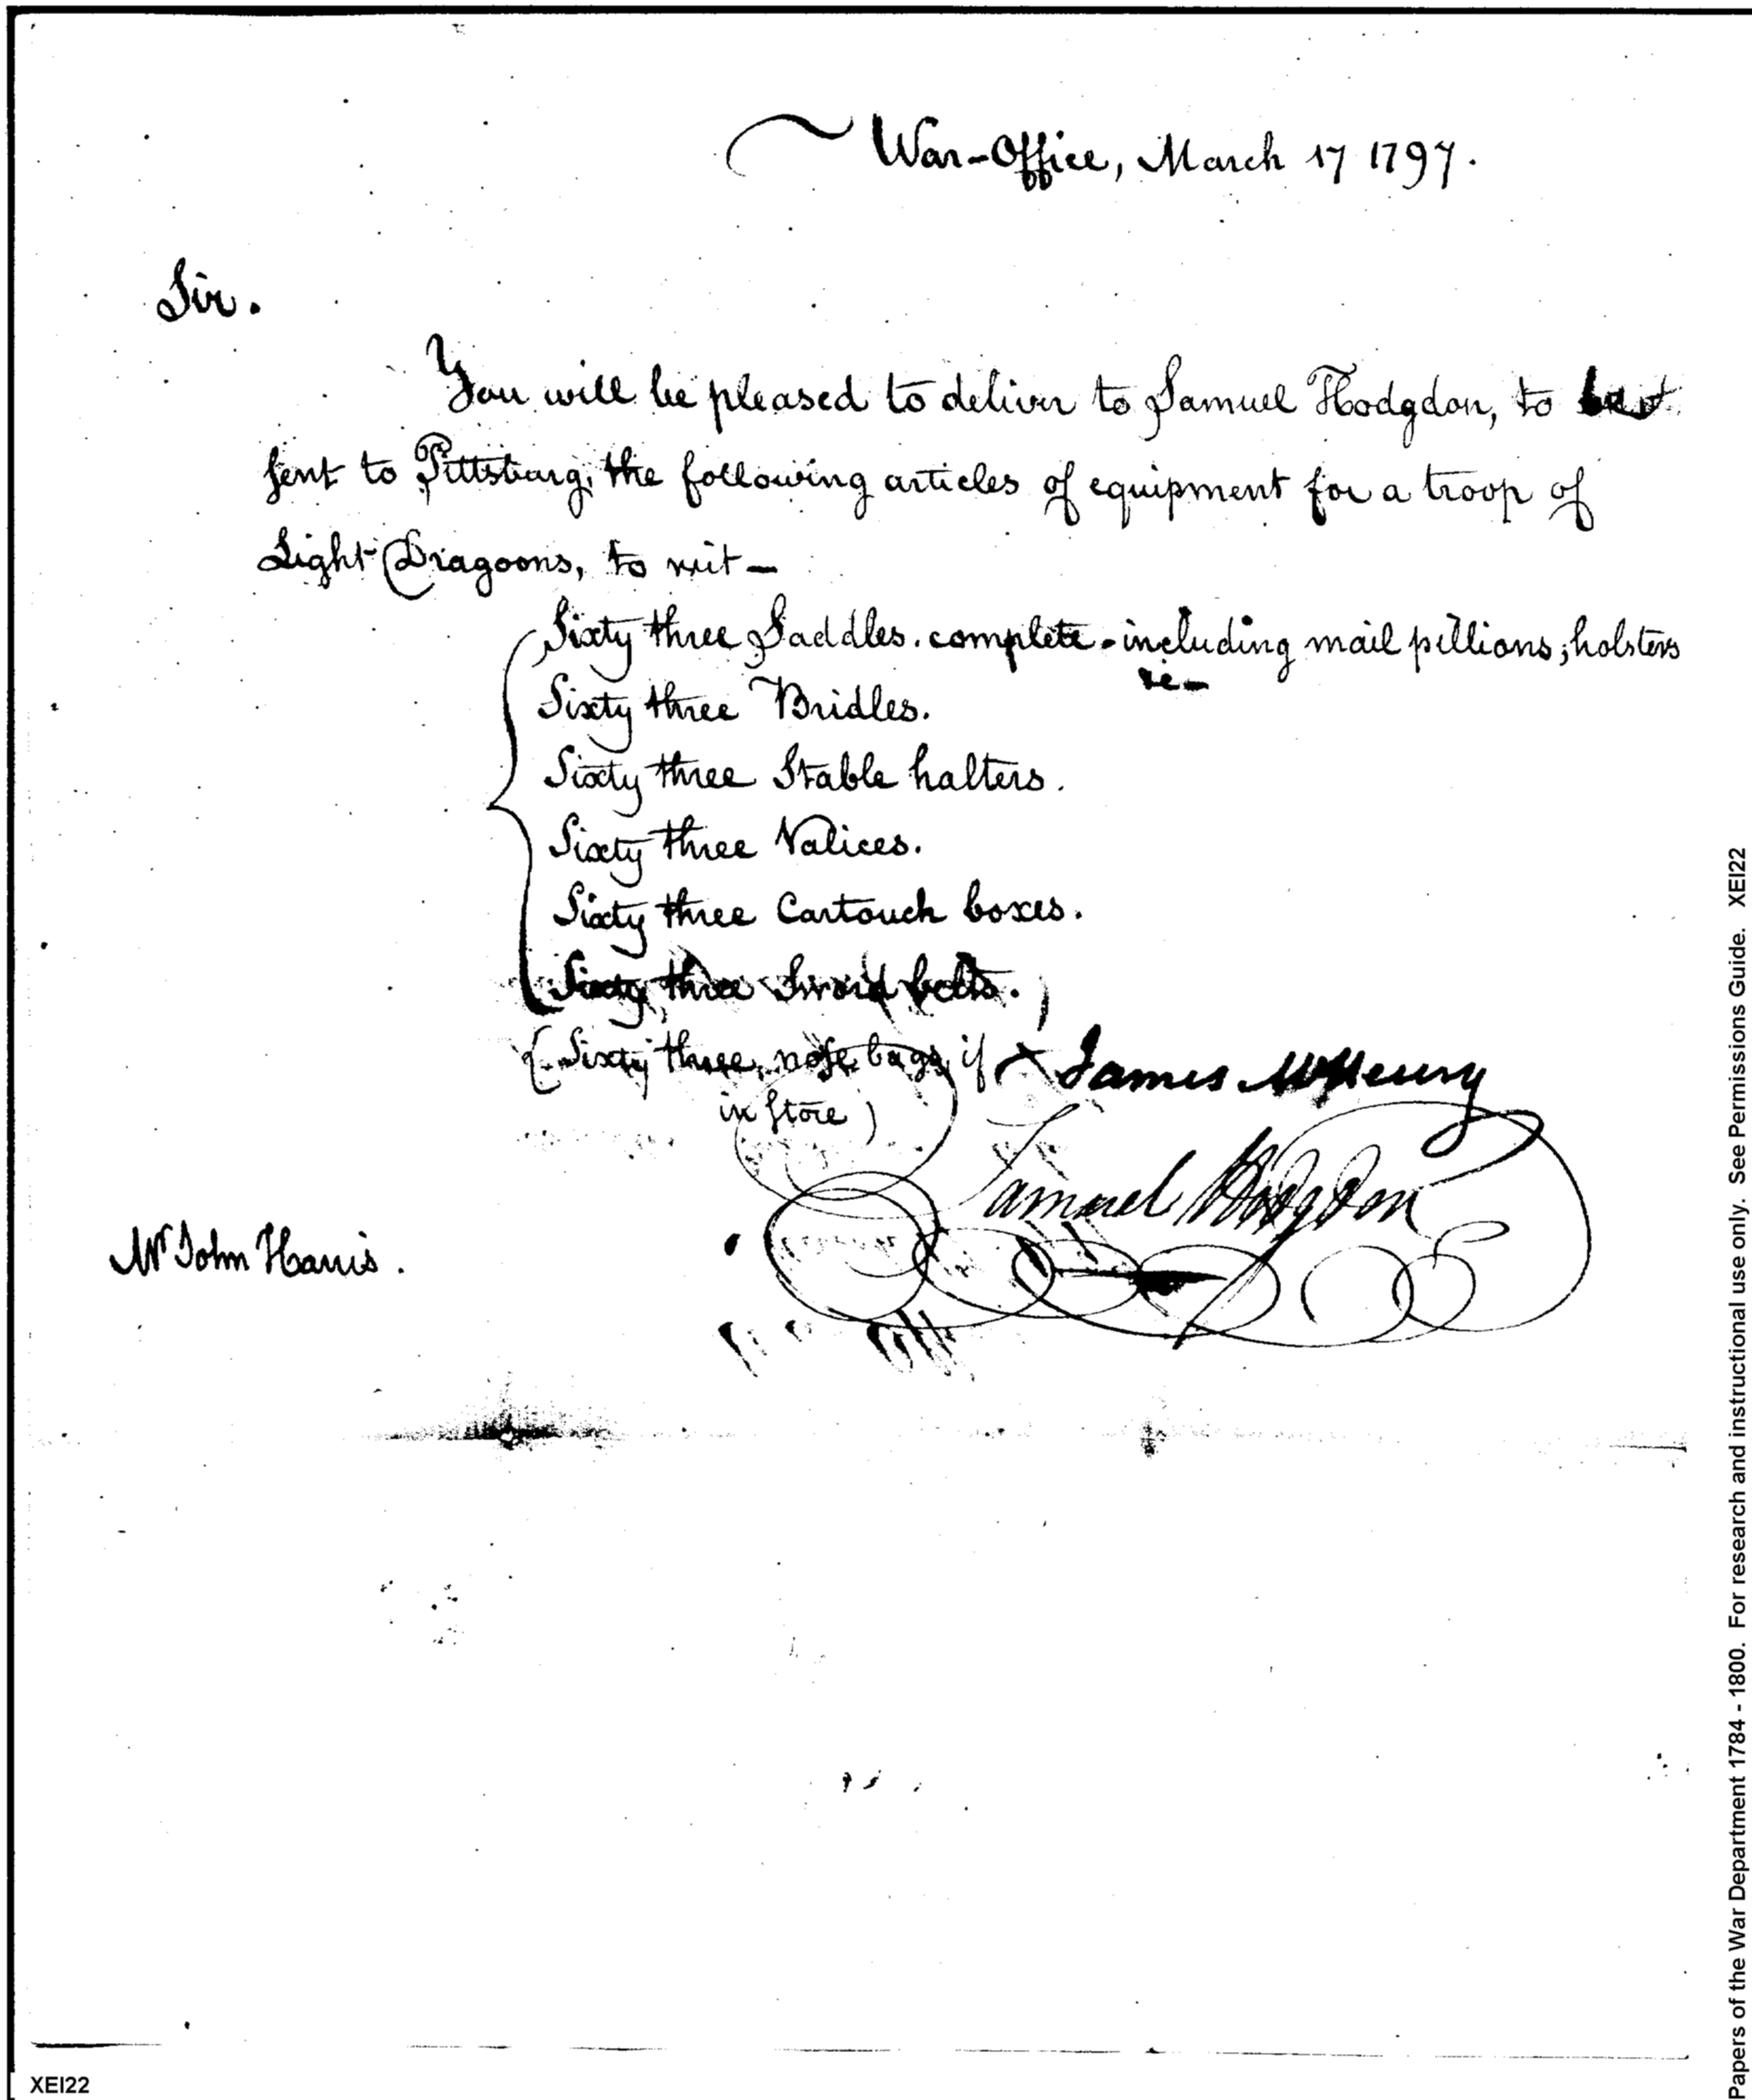 War-Office, March 17 1797.
Sir.
You will be pleased to deliver to Samuel Hodgdon, to be
sent to Pittsburg, the following articles of equipment for a troop of
Light Dragoons, to wit—
Sixty three Saddles. complete - including mail pillions, holsters
Sixty three Bridles.
Sixty three Stable halters.
Sixty three Valices.
Sixty three Cartouch boxes.
Sixty three Sword belts.
(Sixty three nose bags if
in Store)
James McHenry
Samuel Hodgdon
Mr John Harris.
XEI22
Papers of the War Department 1784 - 1800. For research and instructional use only. See Permissions Guide. XEI22